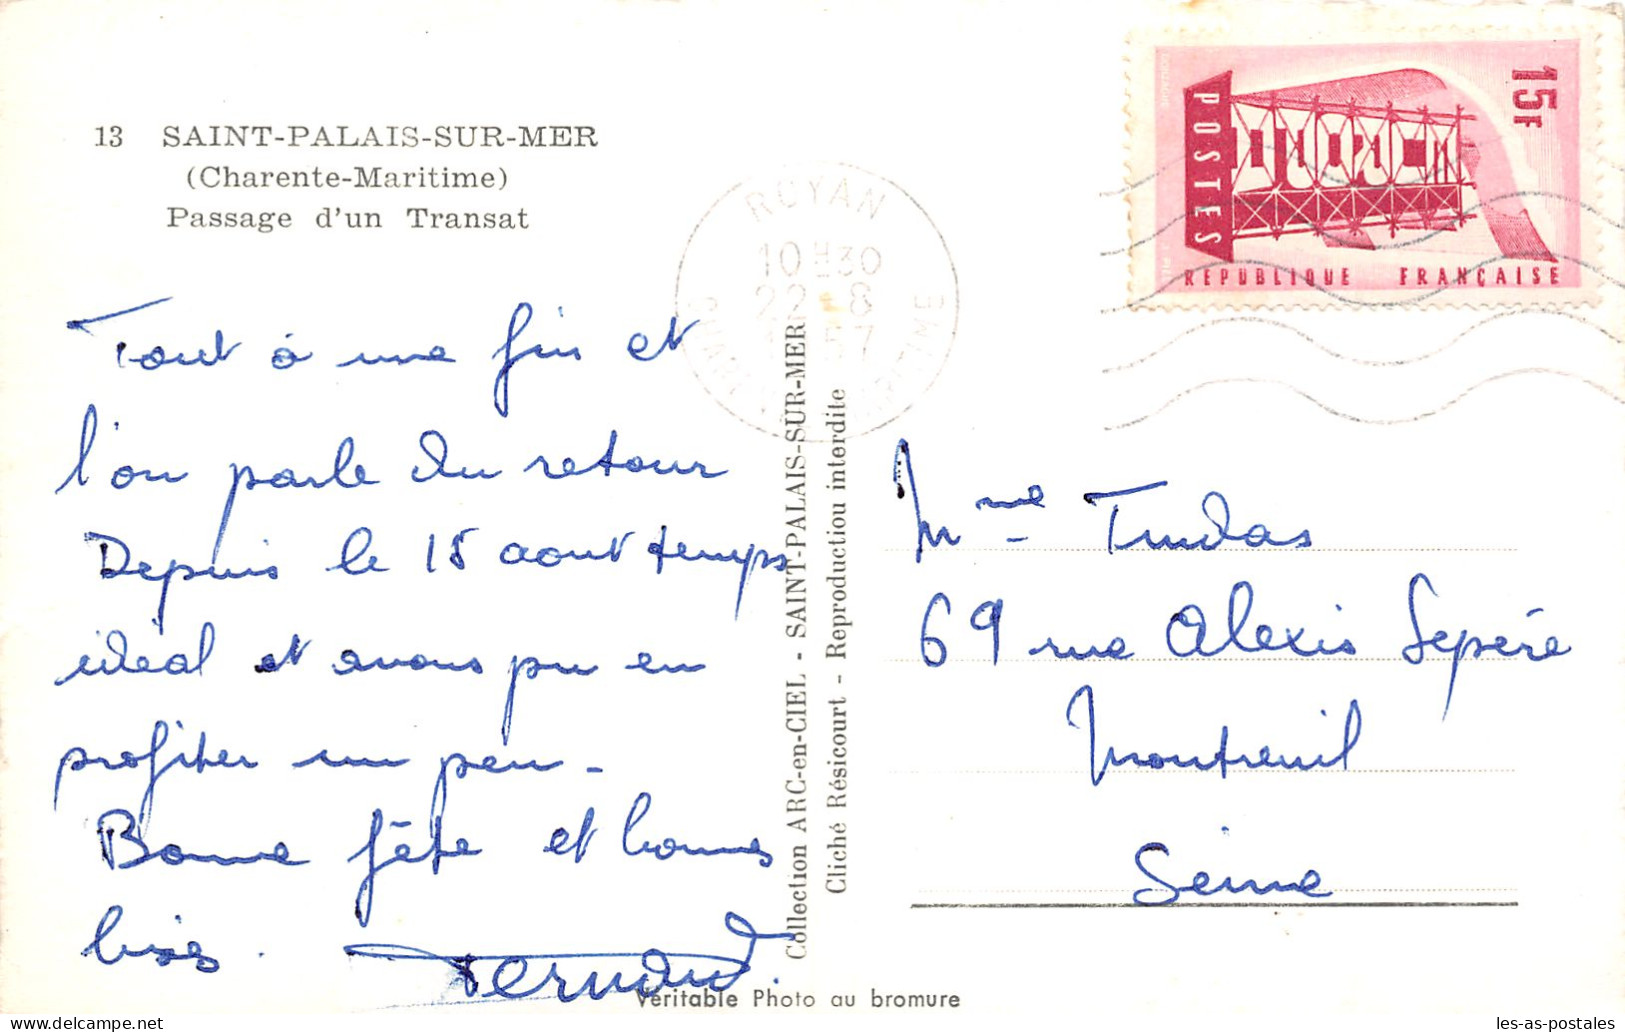 13 SAINT-PALAIS-SUR-MER
(Charente-Maritime)
Passage d'un Transat
Tout à une fin et
l'on parle du retour
Depuis le 15 aout temps
idéal et avons pu en
profiter un peu -
Bonne fête et bonnes
bises. Fernand.
Collection ARC-en-CIEL - SAINT-PALAIS-SUR-MER
Cliché Résicourt - Reproduction interdite
Véritable Photo au bromure
ROYAN
10H30
22-8
POSTES
15F
REPUBLIQUE FRANÇAISE
Mme Tindas
69 rue Alexis Lepère
Montreuil
Seine
les-as-postales